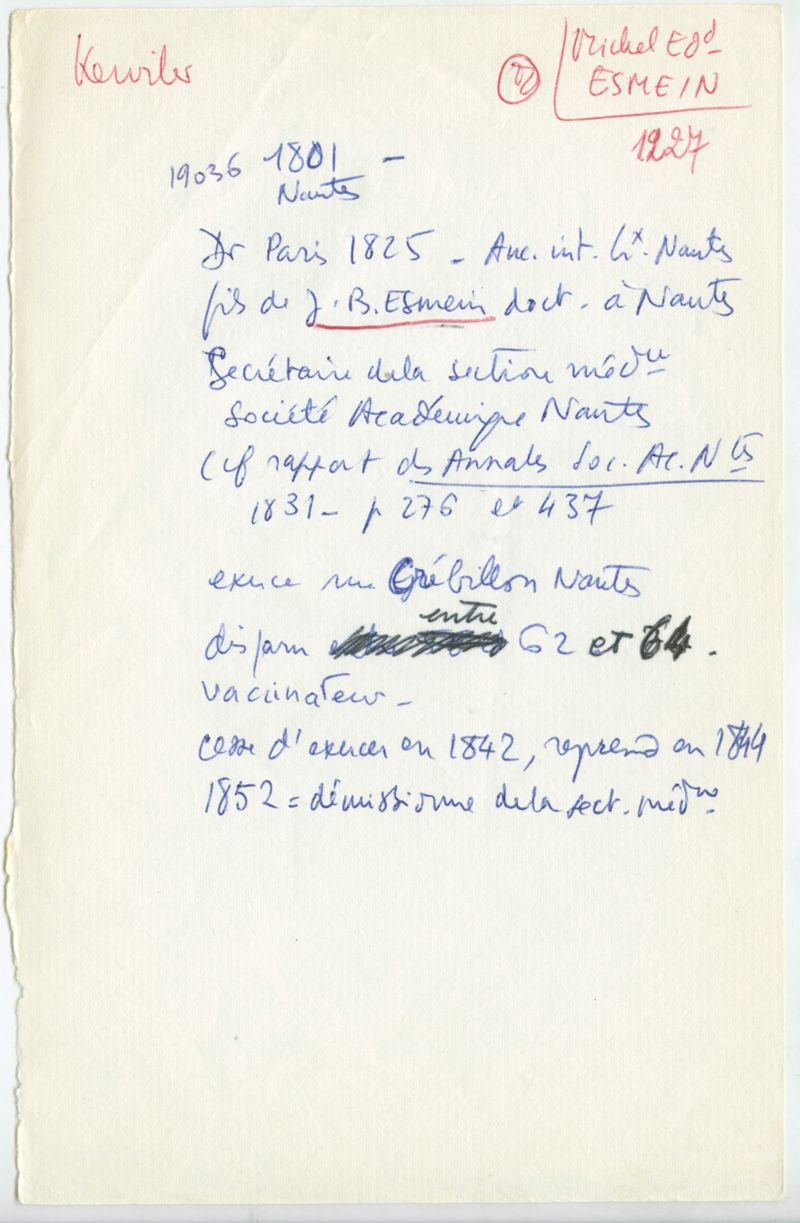 Kerviler
Michel Edd
ESMEIN
1227
19036 1801 –
Nantes
Dr Paris 1825 – Anc. int. hx. Nantes
fils de J.B. Esmein doct. à Nantes
Secrétaire de la section médle
Société Académique Nantes
(cf rapport ds Annales Soc. Ac. Ntes
1831 – p 276 et 437
exerce rue Crébillon Nantes
entre
disparu 62 et 64.
vaccinateur –
cesse d'exercer en 1842, reprend en 1844
1852 = démissionne de la sect. méd